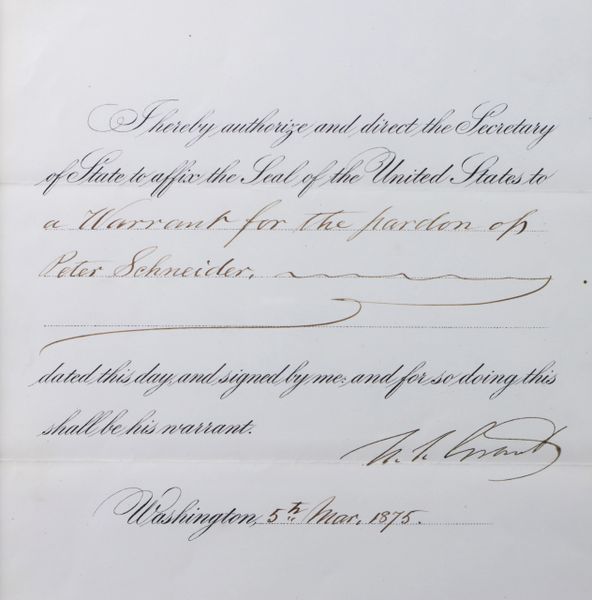 I hereby authorize and direct the Secretary
of State to affix the Seal of the United States to
a Warrant for the pardon of
Peter Schneider.
dated this day, and signed by me: and for so doing this
shall be his warrant.
U. S. Grant
Washington, 5th Mar. 1875.